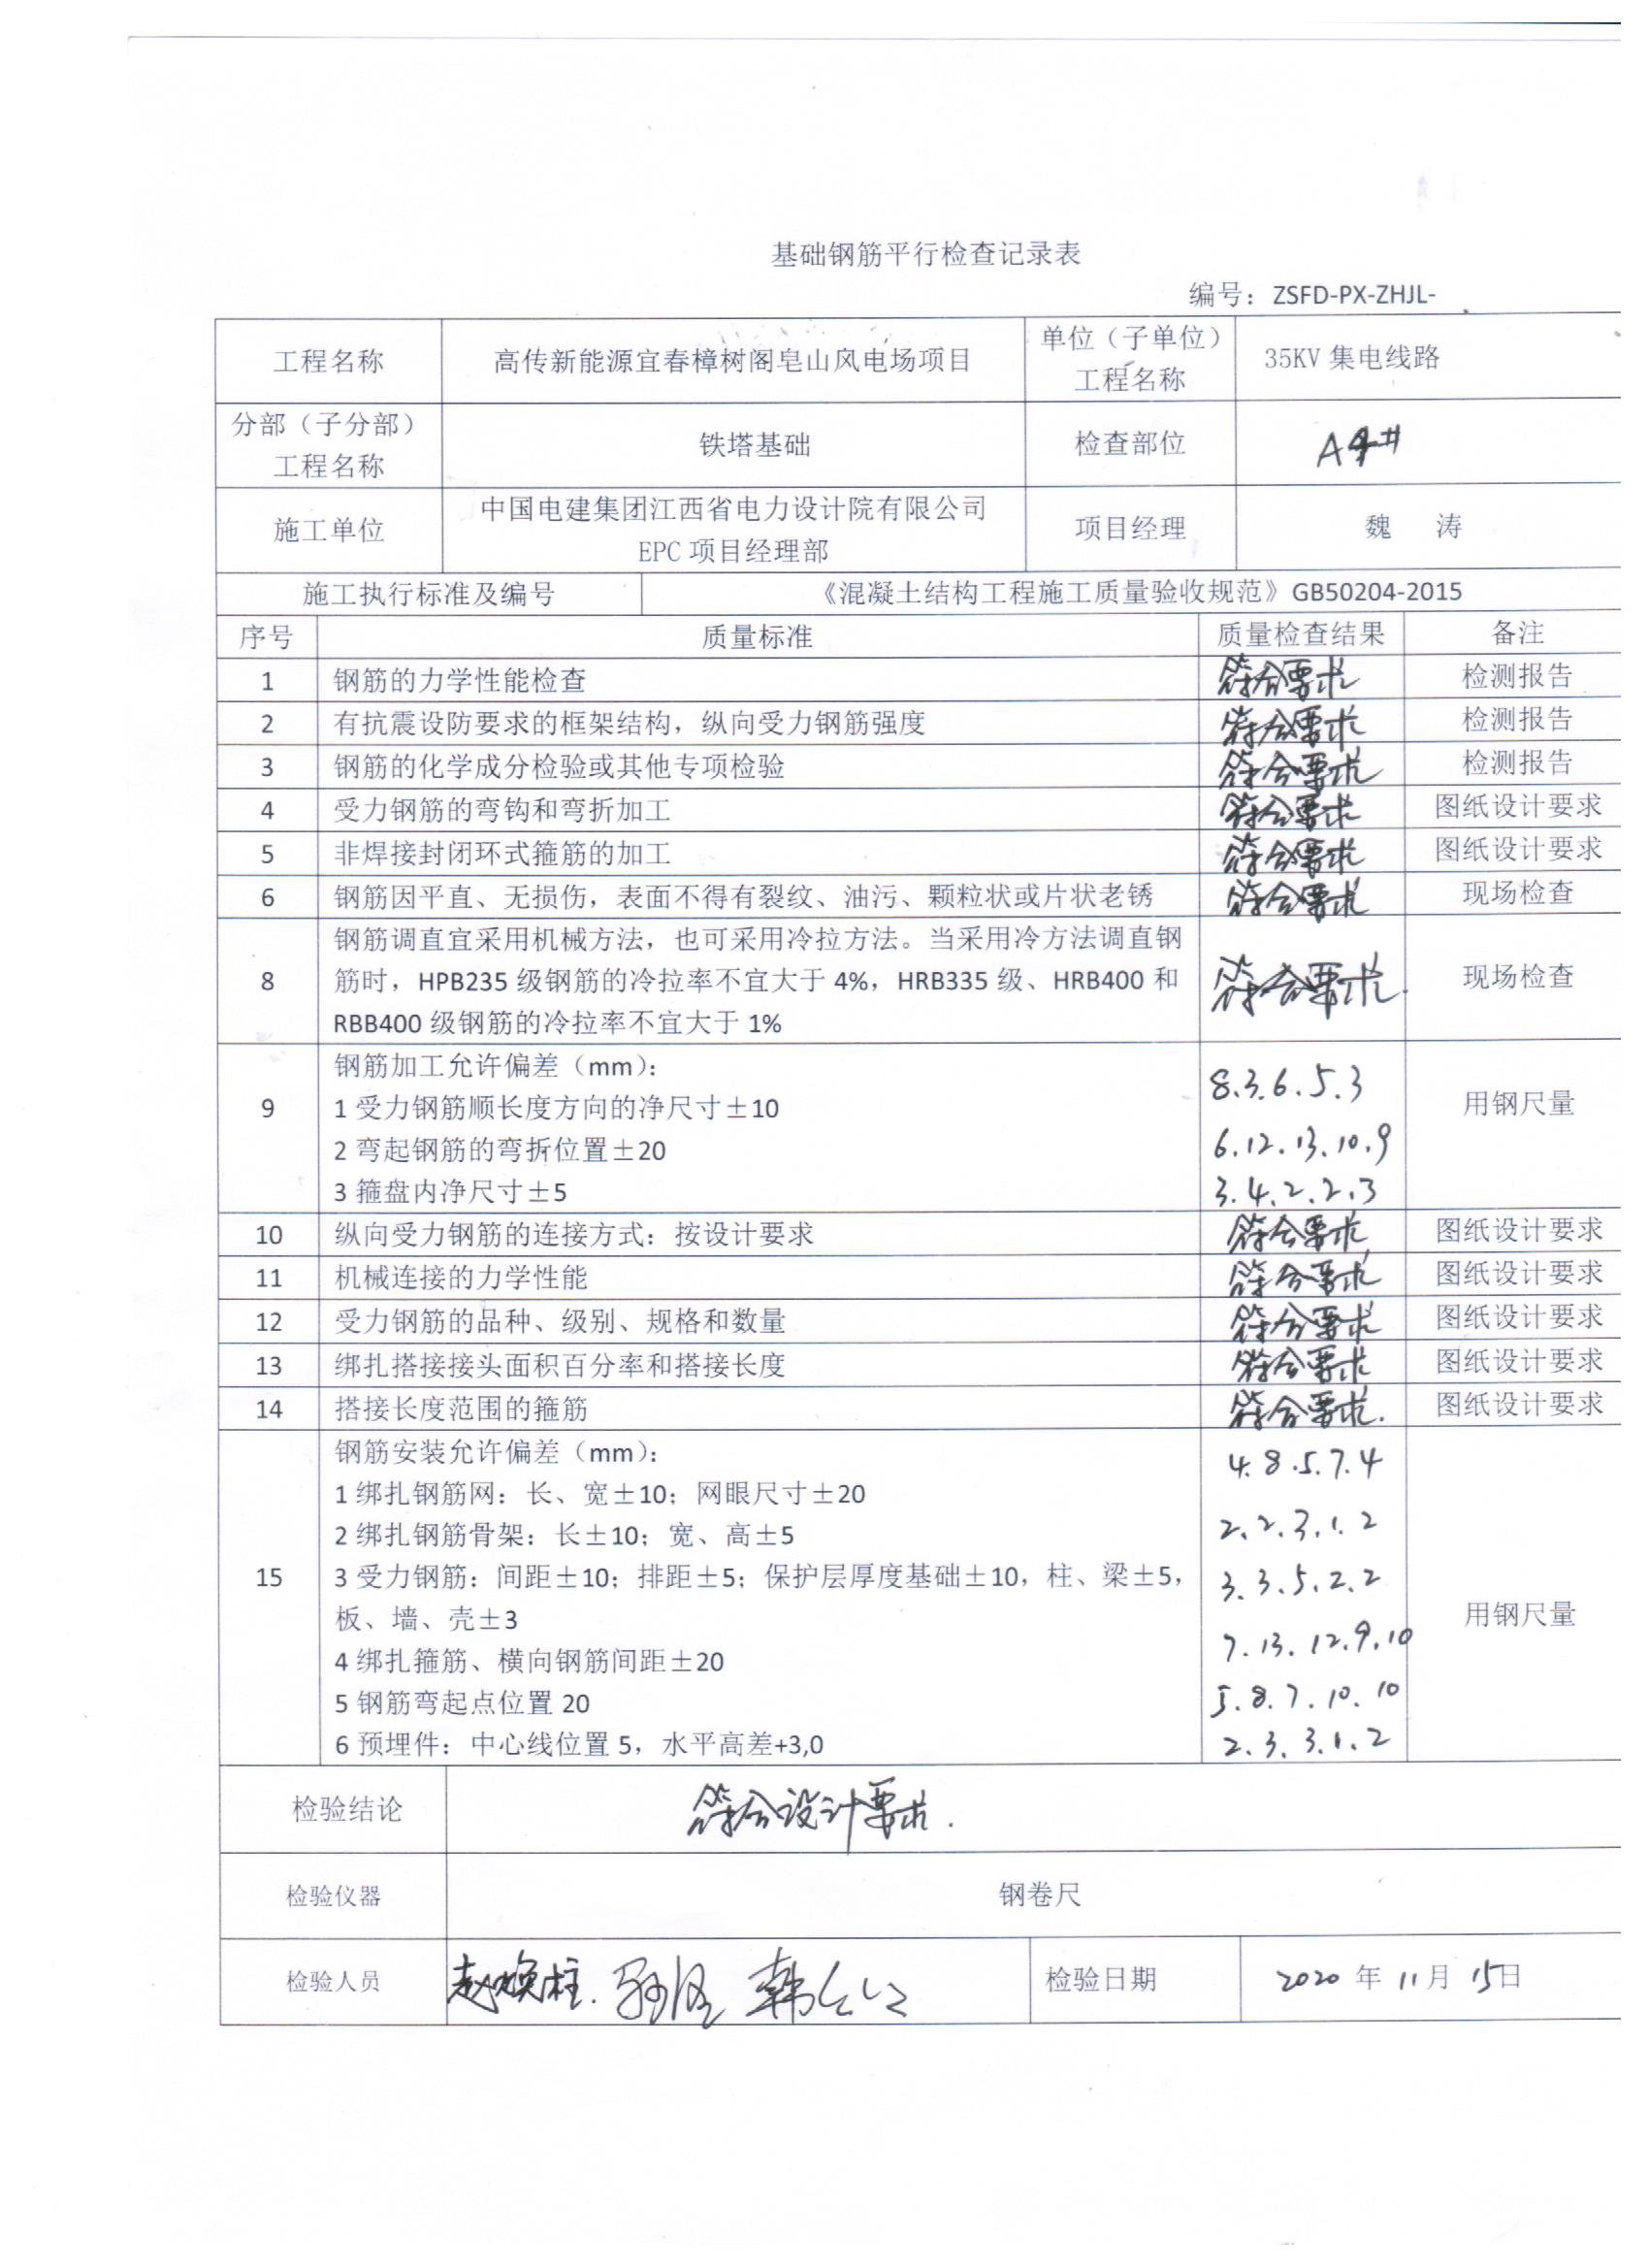 基础钢筋平行检查记录表
编号：ZSFD-PX-ZHJL-
工程名称 高传新能源宜春樟树阁皂山风电场项目 单位（子单位）工程名称 35KV 集电线路
分部（子分部）工程名称 铁塔基础 检查部位
施工单位 中国电建集团江西省电力设计院有限公司 EPC 项目经理部 项目经理 魏 涛
施工执行标准及编号 《混凝土结构工程施工质量验收规范》GB50204-2015
序号 质量标准 质量检查结果 备注
1 钢筋的力学性能检查 符合要求 检测报告
2 有抗震设防要求的框架结构，纵向受力钢筋强度 符合要求 检测报告
3 钢筋的化学成分检验或其他专项检验 符合要求 检测报告
4 受力钢筋的弯钩和弯折加工 符合要求 图纸设计要求
5 非焊接封闭环式箍筋的加工 符合要求 图纸设计要求
6 钢筋因平直、无损伤，表面不得有裂纹、油污、颗粒状或片状老锈 符合要求 现场检查
钢筋调直宜采用机械方法，也可采用冷拉方法。当采用冷方法调直钢
8 筋时，HPB235 级钢筋的冷拉率不宜大于 4%，HRB335 级、HRB400 和 符合要求. 现场检查
RBB400 级钢筋的冷拉率不宜大于 1%
钢筋加工允许偏差（mm）： 8.3.6.5.3
9 1 受力钢筋顺长度方向的净尺寸±10 用钢尺量
2 弯起钢筋的弯折位置±20 6.12.13.10.9
3 箍盘内净尺寸±5 3.4.2.2.3
10 纵向受力钢筋的连接方式：按设计要求 符合要求 图纸设计要求
11 机械连接的力学性能 符合要求 图纸设计要求
12 受力钢筋的品种、级别、规格和数量 符合要求 图纸设计要求
13 绑扎搭接接头面积百分率和搭接长度 符合要求 图纸设计要求
14 搭接长度范围的箍筋 符合要求. 图纸设计要求
钢筋安装允许偏差（mm）： 4.8.5.7.4
1 绑扎钢筋网：长、宽±10；网眼尺寸±20
2 绑扎钢筋骨架：长±10；宽、高±5 2.2.3.1.2
15 3 受力钢筋：间距±10；排距±5；保护层厚度基础±10，柱、梁±5， 3.3.5.2.2
板、墙、壳±3 用钢尺量
4 绑扎箍筋、横向钢筋间距±20 7.13.12.9.10
5 钢筋弯起点位置 20 5.8.7.10.10
6 预埋件：中心线位置 5，水平高差+3,0 2.3.3.1.2
检验结论 符合设计要求.
检验仪器 钢卷尺
检验人员 赵焕柱. 检验日期 2020 年 11 月 15日